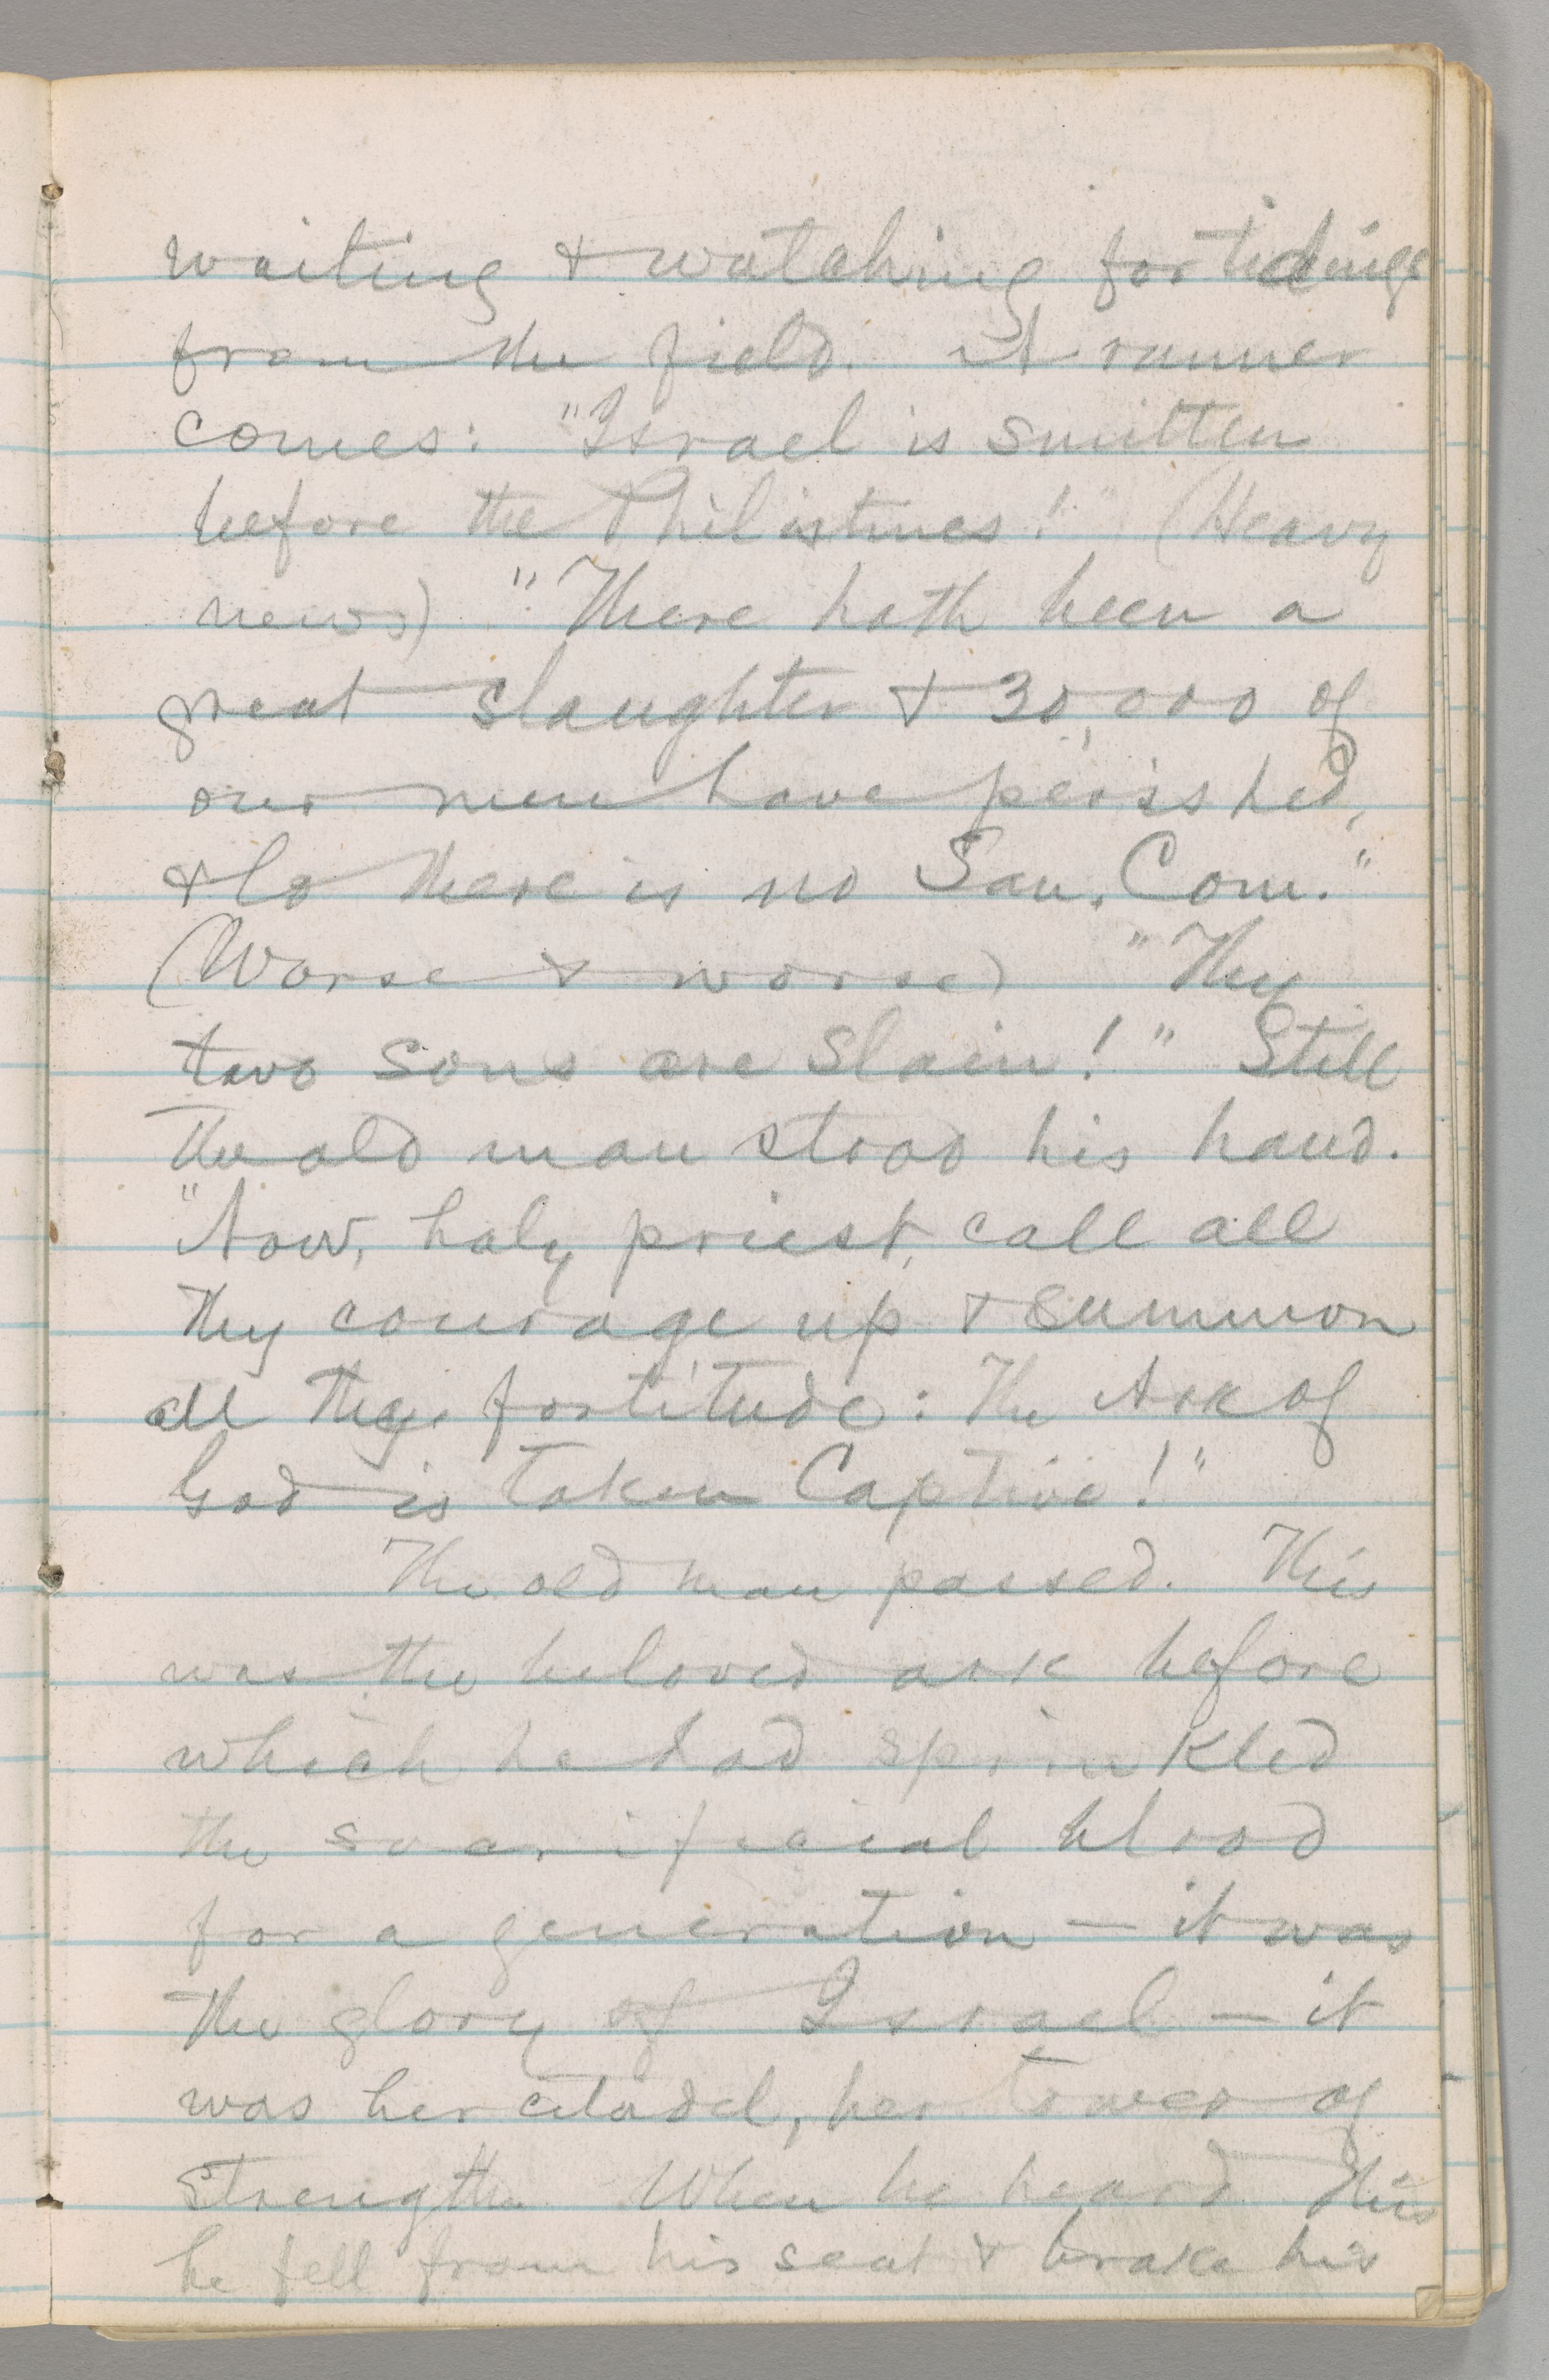 waiting & watching for tidings
from the field. A runner
comes: "Israel is smitten
before the Philistines!" (Heavy
news) "There hath been a
great slaughter & 30,000 of
our men have perished,
& lo there is no San. Com."
(Worse & worse) "Thy
two sons are slain!" Still
the old man stood his hand.
"Now, holy priest, call all
thy courage up & summon
all thy fortitude: The Ark of
God is taken Captive!"
The old man passed. This
was the beloved ark before
which he had sprinkled
the sacrificial blood
for a generation — it was
the glory of Israel — it
was her citadel, her tower of
strength. When he heard this
he fell from his seat & brake his